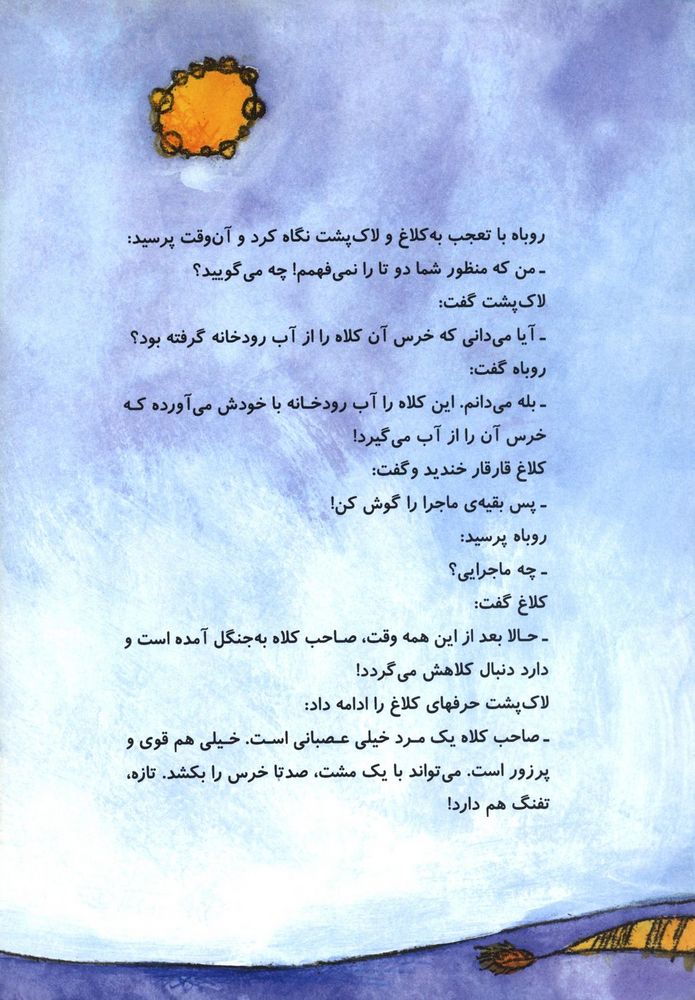 روباه با تعجب به‌کلاغ و لاک‌پشت نگاه کرد و آن‌وقت پرسید:
ـ من که منظور شما دو تا را نمی‌فهمم! چه می‌گویید؟
لاک‌پشت گفت:
ـ آیا می‌دانی که خرس آن کلاه را از آب رودخانه گرفته بود؟
روباه گفت:
ـ بله می‌دانم. این کلاه را آب رودخـانه با خودش می‌آورده کـه
خرس آن را از آب می‌گیرد!
کلاغ قارقار خندید وگفت:
ـ پس بقیه‌ی ماجرا را گوش کن!
روباه پرسید:
ـ چه ماجرایی؟
کلاغ گفت:
ـ حـالا بعد از این همه وقت، صـاحب کلاه به‌جنگل آمده است و
دارد دنبال کلاهش می‌گردد!
لاک‌پشت حرفهای کلاغ را ادامه داد:
ـ صاحب کلاه یک مـرد خیلی عـصبانی است. خیلی هم قوی و
پرزور است. می‌تواند با یک مشت، صدتا خرس را بکشد. تازه،
تفنگ هم دارد!